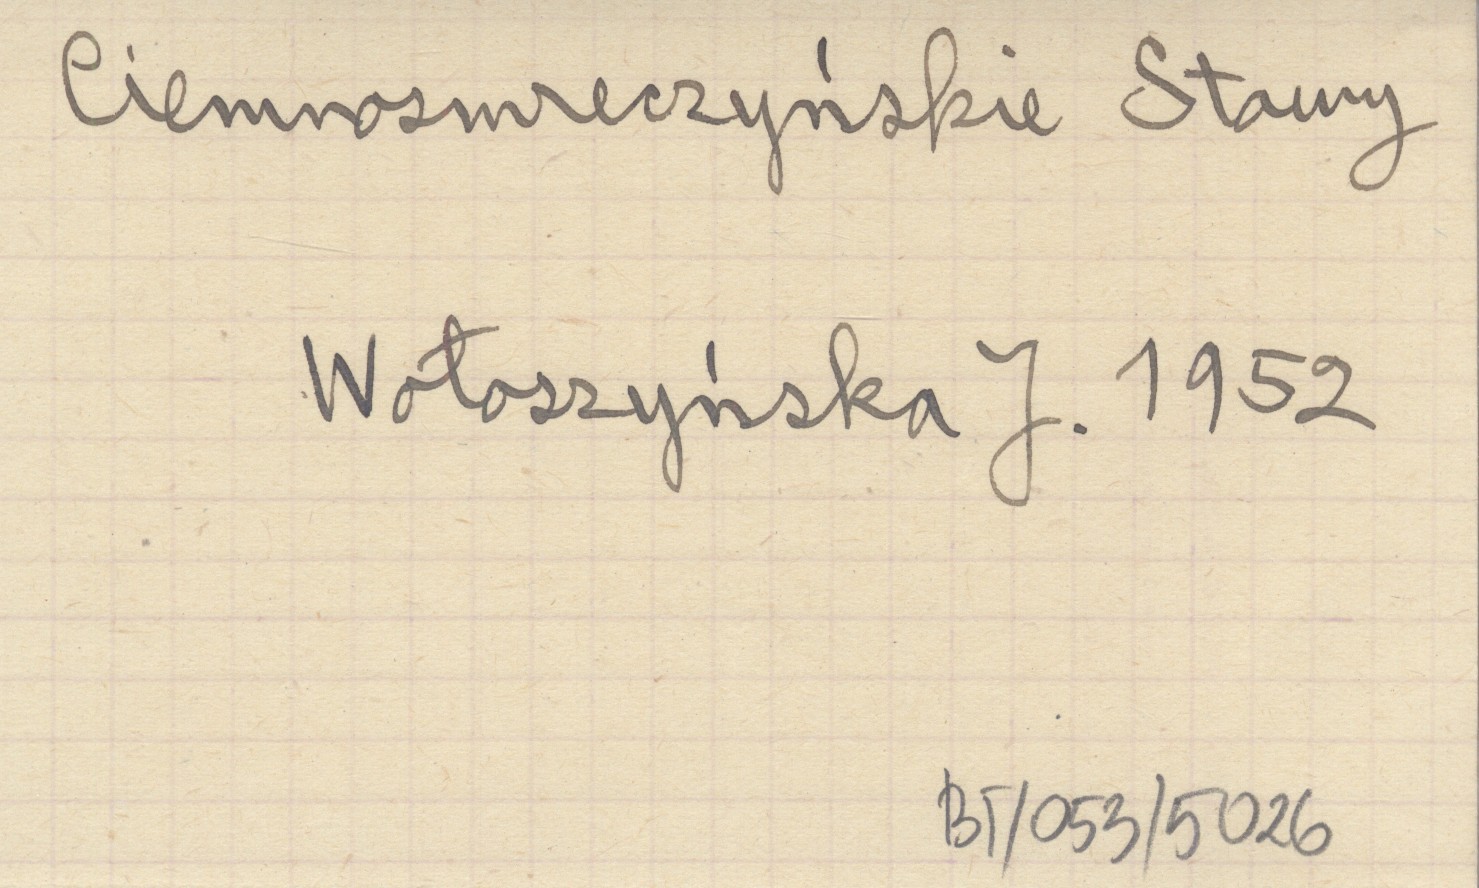 Ciemnosmreczyńskie Stawy
Wołoszyńska J. 1952
BT/053/5026